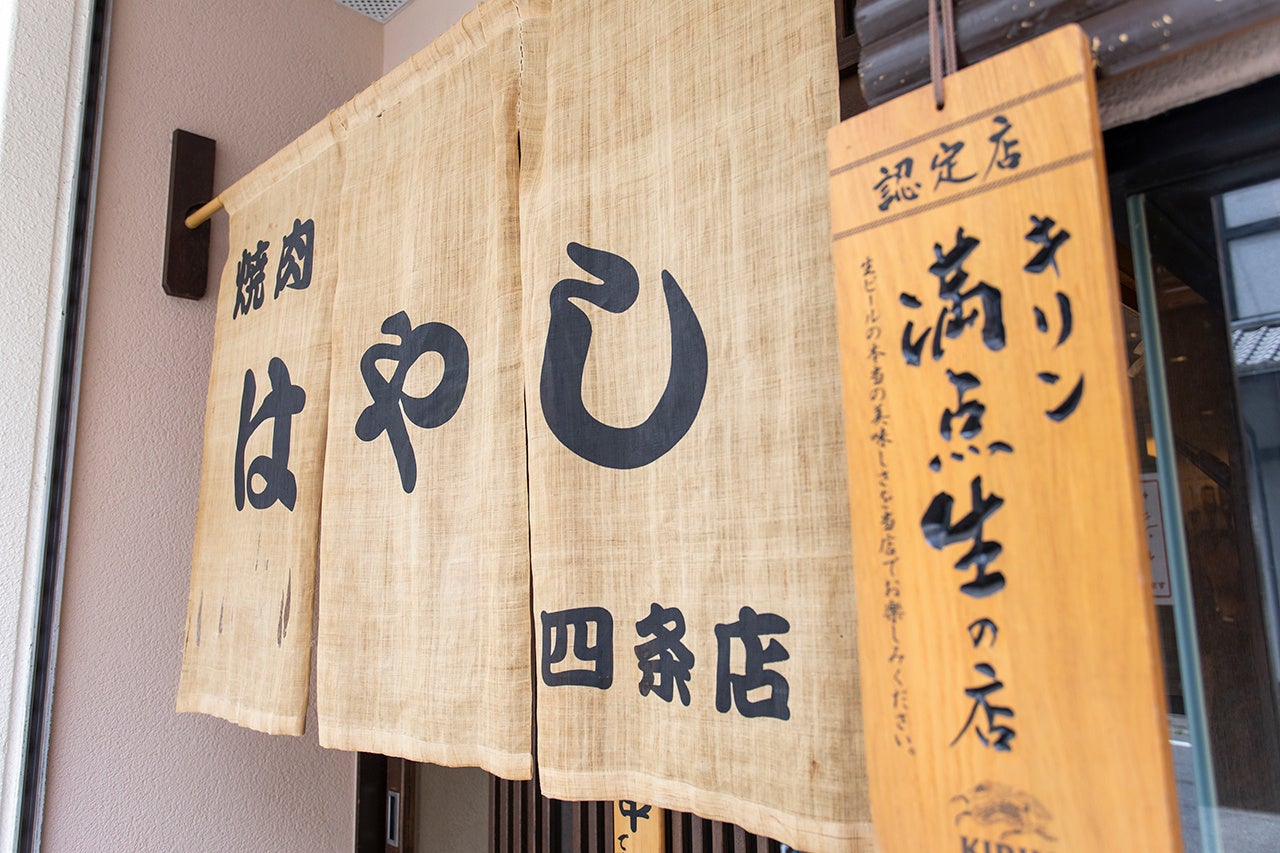 焼肉
はやし
四条店
認定店
キリン
満点生の店
生ビールの本当の美味しさを当店でお楽しみください。